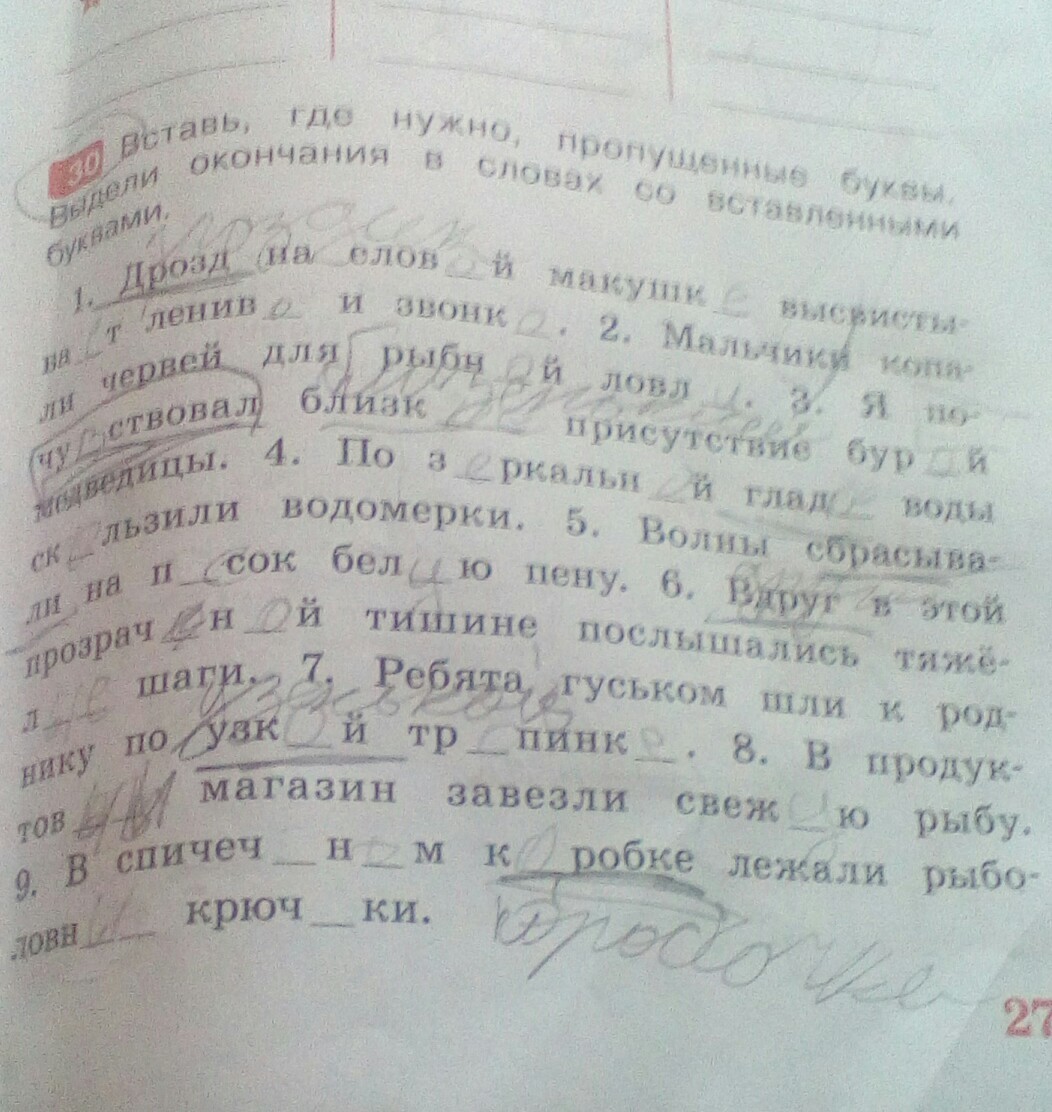 30 Вставь, где нужно, пропущенные буквы.
Выдели окончания в словах со вставленными
буквами.
1. Дрозд на елов о й макушк е высвисты-
ва _ т ленив о и звонк о . 2. Мальчики копа-
ли червей для рыбн о й ловл и . 3. Я по-
чу в ствовал близк ое присутствие бур о й
медведицы. 4. По з е ркальн о й глад е воды
ск _ льзили водомерки. 5. Волны сбрасыва-
ли на п е сок бел у ю пену. 6. Вдруг в этой
прозрач _ н о й тишине послышались тяжё-
л ые шаги. 7. Ребята гуськом шли к род-
нику по узк о й тр _ пинк е . 8. В продук-
тов ый магазин завезли свеж у ю рыбу.
9. В спичеч _ н о м к о робке лежали рыбо-
ловн ые крюч _ ки.
коробочке
27